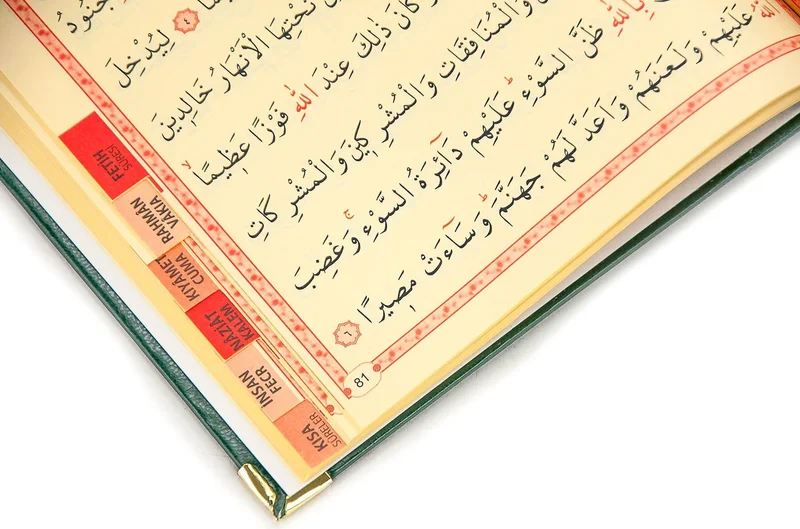 جُنُودُ
٤ لِيُدْخِلَ
تَحْتِهَا الْاَنْهَارُ خَالِدٖينَ
كَانَ ذٰلِكَ عِنْدَ اللّٰهِ فَوْزًا عَظٖيمًا
وَالْمُنَافِقَاتِ وَالْمُشْرِكٖينَ وَالْمُشْرِكَاتِ
بِاللّٰهِ ظَنَّ السَّوْءِۜ عَلَيْهِمْ دَٓائِرَةُ السَّوْءِۚ وَغَضِبَ
اللّٰهُ عَلَيْهِمْ وَلَعَنَهُمْ وَاَعَدَّ لَهُمْ جَهَنَّمَۜ وَسَٓاءَتْ مَصٖيرًا ٦
81
FETİH
SÛRESİ
RAHMÂN
VÂKIA
KIYÂMET
CUMA
NÂZİÂT
KALEM
İNSAN
FECR
KISA
SÛRELER